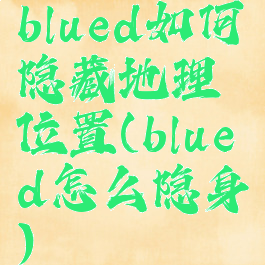 blued如何
隐藏地理
位置(blue
d怎么隐身
)